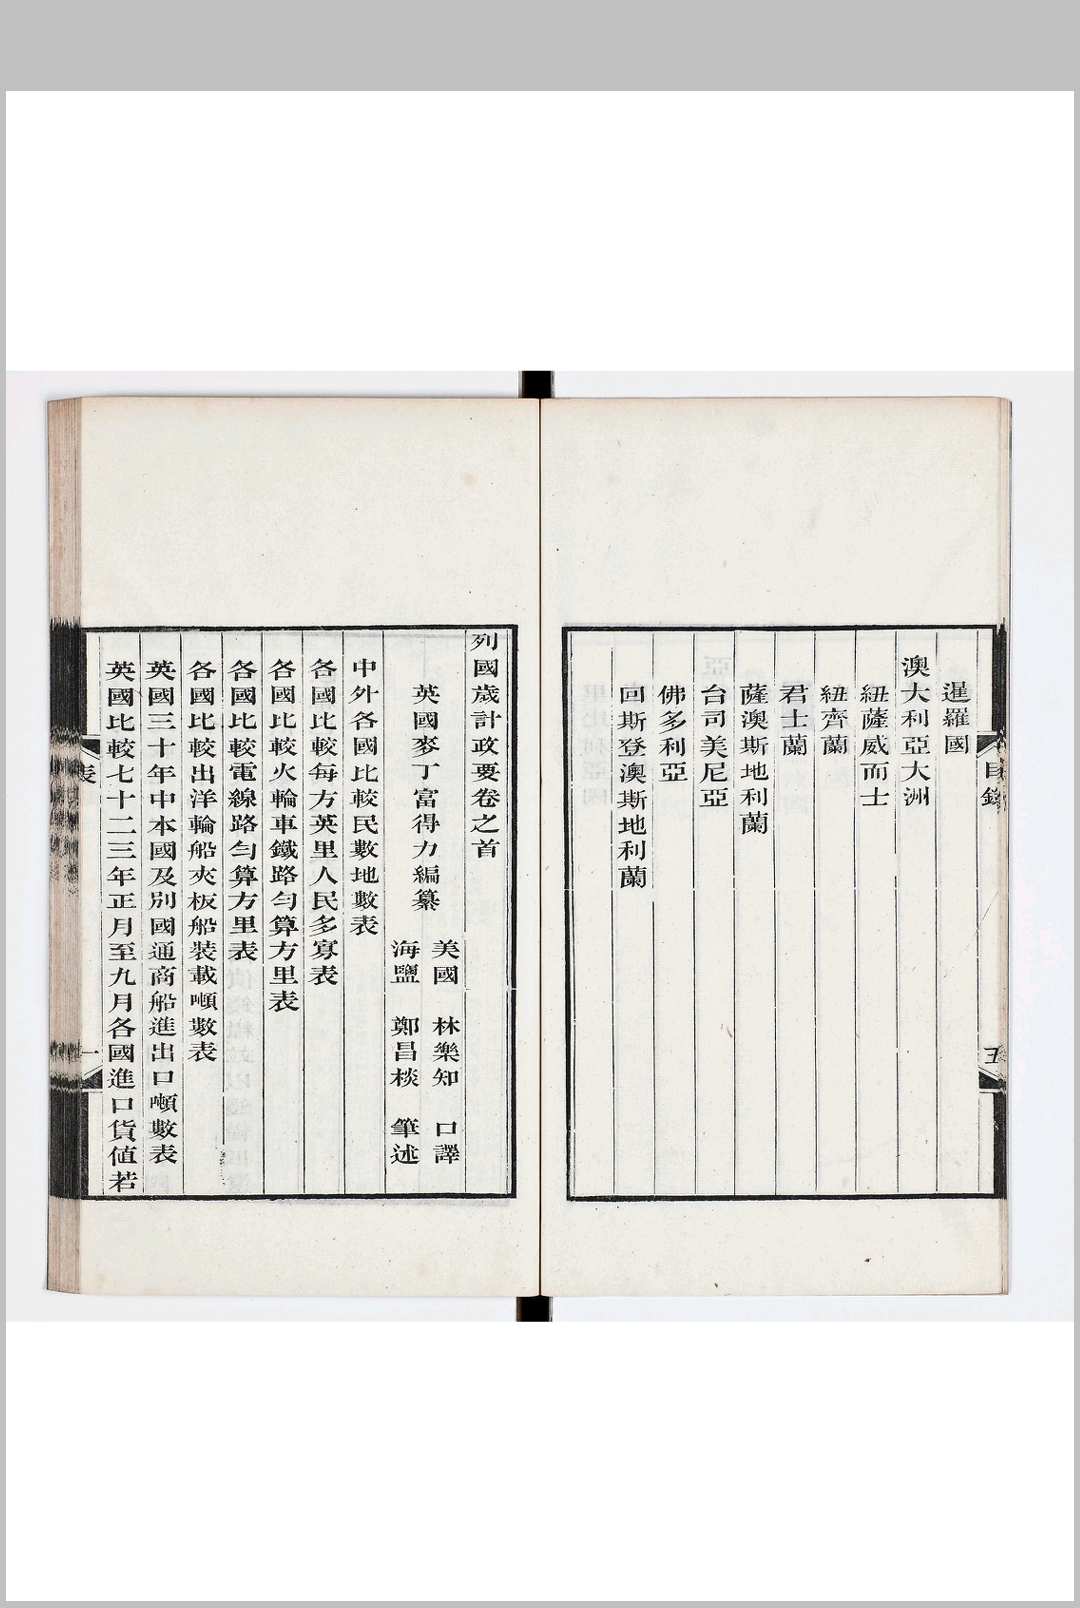 暹羅國
澳大利亞大洲
紐薩威而士
紐齊蘭
君士蘭
薩澳斯地利蘭
台司美尼亞
佛多利亞
回斯登澳斯地利蘭
目錄
五
列國歲計政要卷之首
英國麥丁富得力編纂
美國 林樂知 口譯
海鹽 鄭昌棪 筆述
中外各國比較民數地數表
各國比較每方英里人民多寡表
各國比較火輪車鐵路勻算方里表
各國比較電線路勻算方里表
各國比較出洋輪船夾板船裝載噸數表
英國三十年中本國及別國通商船進出口噸數表
英國比較七十二三年正月至九月各國進口貨值若
表
一